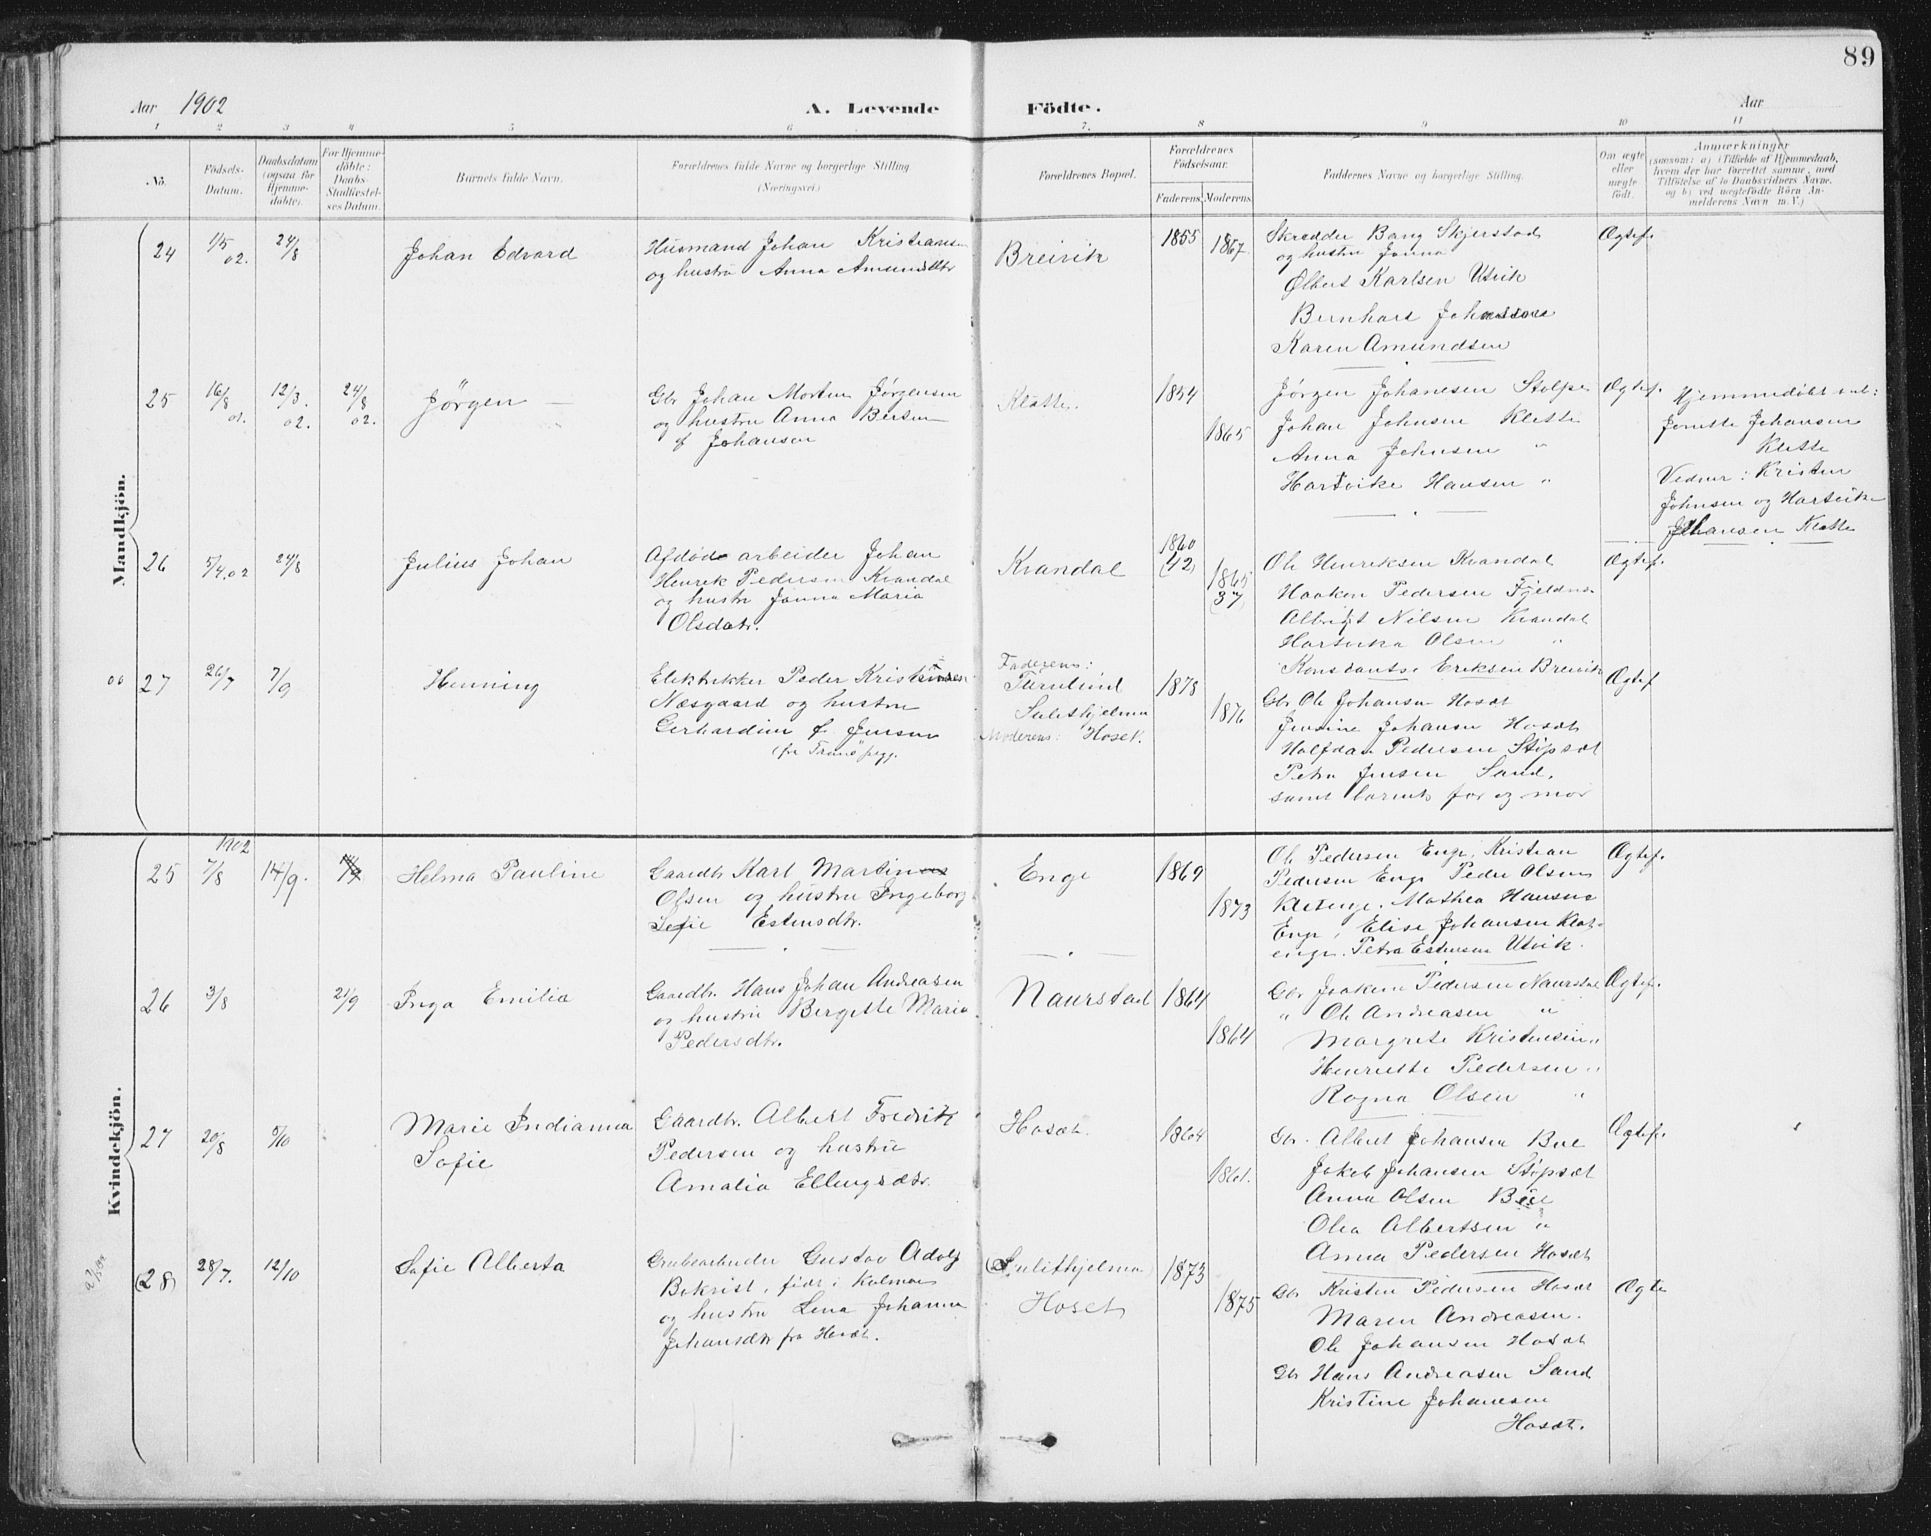 89
Aar 1902
A. Levende Födte.
Aar
1 2 3 4 5 6 7. 8 9 10 11
No.
Födsels-
Datum.
Daabsdatum
(ogsaa for
Hjemme-
döbte).
For Hjemme-
döbte:
Daabs-
Stadfæstel-
ses Datum.
Barnets fulde Navn.
Forældrenes fulde Navne og borgerlige Stilling
(Næringsvei.)
Forældrenes Bopæl.
Forældrenes
Födselsaar.
Faderens. Moderens.
Faddernes Navne og borgerlige Stilling.
Om ægte
eller
uægte
födt.
Anmærkninger
(saasom: a) i Tilfælde af Hjemmedaab,
hvem der har forrettet samme, med
Tilföielse af to Daabsvidners Navne,
og b) ved uægtefödte Börn An-
melderens Navn m. V.)
Mandkjön.
24
1/5 02.
24/8
Johan Edvard
Husmand Johan Kristiansen
og hustru Anna Amundsdtr
Breivik
1855
1867
Skrædder Bang Skjerstad
og hustru Janna
Ølbert Karlsen Utvik
Bernhard
Karen Amundsen
Ægtef.
25
16/8 01.
12/3. 02.
24/8 02.
Jörgen
Gbr Johan Morten Jørgensen
og hustru Anna
f Johansen
Klette.
1854
1865
Jørgen Johanesen Stolpe
Johan Johnsen Klette
Anna Johnsen "
Hartvike Hansen "
Ægtef.
Hjemmedøbt ved:
Jonette Johansen
Klette
Vedner: Kristen
Johnsen og Hartvike
Johansen Klette
26
5/4.02
24/8
Julius Johan
Afdøde arbeider Johan
Henrik Pedersen Kvandal
og hustru Janna Maria
Olsdatr.
Kvandal
1860
(42)
1865
(37)
Ole Henriksen Kvandal
Haakon Pedersen Fjeldnes
Albrigt Nilsen Kvandal
Hartvika Olsen "
Konstantse Eriksen Breivik
Ægtef.
27
26/7
7/9
Henning
Elektrikker Peder Kristensen
Næsgaard og hustru
Gerhardine f Jensen
Faderens:
Furulund
Sulithjelma
Moderens: Hoset.
1878
1876
Gbr Ole Johansen Hosæt
Jensine Johansen Hosæt
Halfdan Pedersen Støpsæt
Petra Jensen Sand,
samt barnets far og mor
Ægtef
Kvindekjön.
1902
25
7/8
14/9.
Helma Pauline
Gaardbr Karl Martin
Olsen og hustru Ingeborg
Sofie Estensdtr.
Enge
1869
1873
Ole Pedersen Enge, Kristian
Pedersen Enge Peder Olsen
Kletenge. Mathea Hansen
Enge, Elise Johansen Klet-
enge. Petra Estensen Utvik.
Ægtef.
26
3/8
21/9
Inga Emilie
Gaardbr. Hans Johan Andreasen
og hustru Bergitte Maria
Pedersdtr.
Naurstad
1864
1864
Gbr Joakim Pedersen Naurstad
" Ole Andreasen "
Margrete Kristensen "
Henriette Pedersen "
Ragna Olsen "
Ægtef.
27
20/8
5/10
Marie Indianna
Sofie
Gaardbr. Albert Fredrik
Pedersen og hustru
Amalia Ellingsdtr.
Hosæt.
1864
1861.
Gbr. Albert Johansen Bue
Jakob Johansen Støpsæt
Anna Olsen Bue
Olea Albertsen "
Anna Pedersen Hosæt
Ægtef.
(28)
28/7.
12/10
Sofie Alberta
Grubearbeider Gustav Adolf
Bokvist, født i Kalmar
og hustru Lena Johanna
Johansdtr fra Hosæt.
(Sulithjelma)
Hoset
1873
1875
Gbr Kristen Pedersen Hosæt
Maren Andreasen.
Ole Johansen Hosæt
Gbr Hans Andreasen Sand
Kristine Johanesen
Hosæt.
Ægte